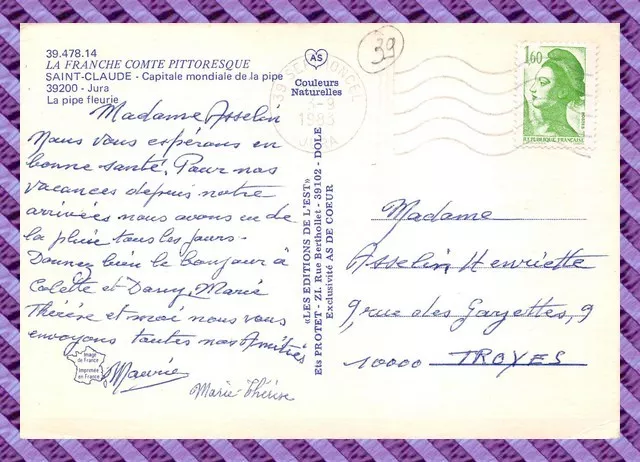 39.478.14
LA FRANCHE COMTE PITTORESQUE
SAINT-CLAUDE - Capitale mondiale de la pipe
39200 - Jura
La pipe fleurie
Madame Asselin
Nous vous espérons en
bonne santé. Pour nos
vacances depuis notre
arrivées nous avons eu de
la pluie tous les jours.
Donnez bien le bonjour à
Colette et Dany, Marie
Thérèse et moi nous vous
envoyons toutes nos Amitiés
Maurice
Marie-Thérèse
Image de France
Imprimée en France
AS
Couleurs
Naturelles
«LES EDITIONS DE L'EST»
Ets PROTET - Z.I. Rue Berthollet - 39102 - DOLE
Exclusivité AS DE COEUR
39
39 SEPTMONCEL
-9
1983
JURA
1,60
REPUBLIQUE FRANÇAISE
Madame
Asselin Henriette
9, rue des Gayettes, 9
10000 TROYES